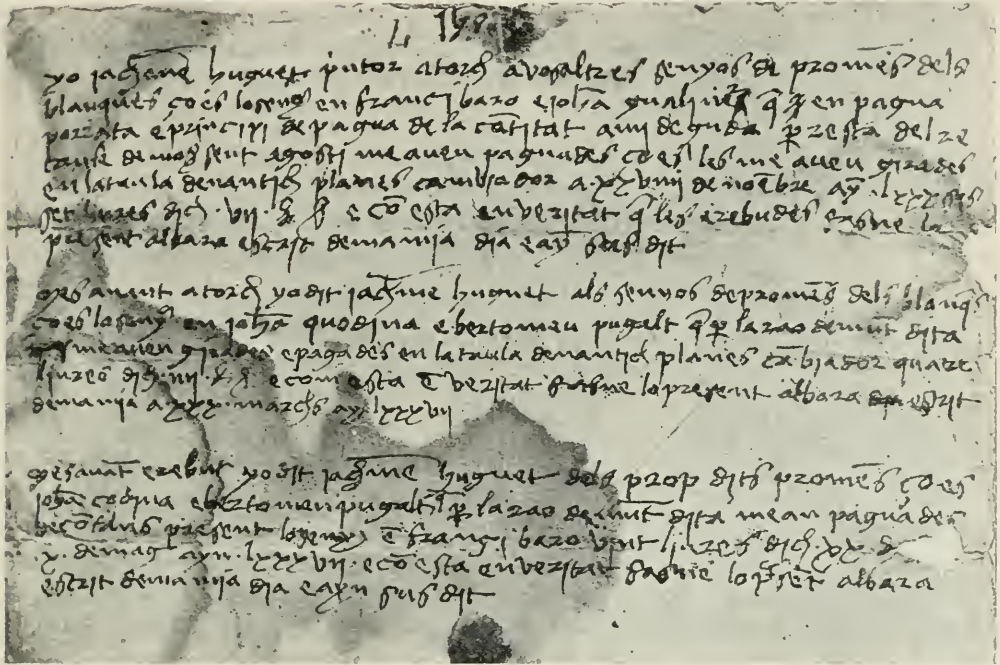 yo iachme huguet pintor atorch avosaltres senyos de promes dels
blanques ço es lo seny en franci baro e johã gualin en pagua
porrata e principi de pagua de la cõtitat a mi deguda p resta del re
taule de mo sent agosti me aveu paguades ço es les me aveu girades
en la taula den antich planes cambiador a xxviiii de noẽbre ay lxxxsis
set liures dich vii e cõ esta en veritat q les e rebudes fasne la
present albara escrit de ma mia dia e ay sus dit
mes avant atorch yo dit iachme huguet als senyos de promes dels blanqs
ço es lo seny en johã quodina e bertomeu pugalt q p la rao demũt dita
me aveu girades e pagades en la taula den antich planes cãbiador quatre
liures dich iiii e com esta ẽ veritat fasne lo present albara escrit
de ma mia a xxx marchs ay lxxxvii
mes avãt e rebut yo dit iachme huguet dels prop dits promes ço es
johã codina e bertomeu pugalt p la rao demũt dita mean paguades
decõtans present lo seny ẽ franci baro vint liures dich xx
x de mag ayn lxxxvii e cõ esta en veritat fasne lo psẽt albara
escrit de ma mia dia e ayn sus dit